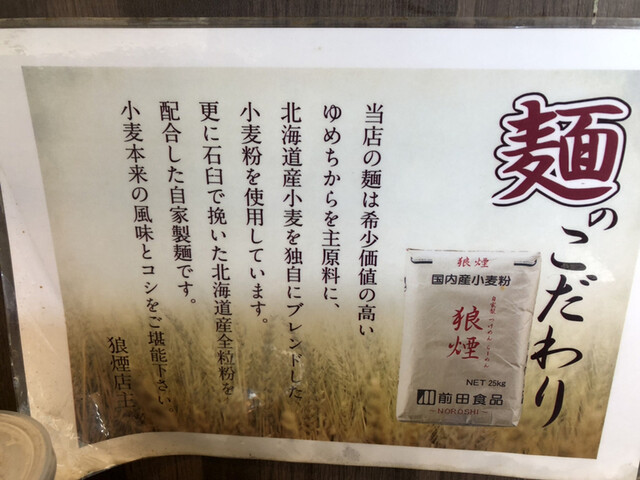 麺のこだわり
当店の麺は希少価値の高い
ゆめちからを主原料に、
北海道産小麦を独自にブレンドした
小麦粉を使用しています。
更に石臼で挽いた北海道産全粒粉を
配合した自家製麺です。
小麦本来の風味とコシをご堪能下さい
狼煙店主
狼煙
国内産小麦粉
自家製つけめんらーめん
狼煙
NET 25kg
前田食品
～NOROSHI～